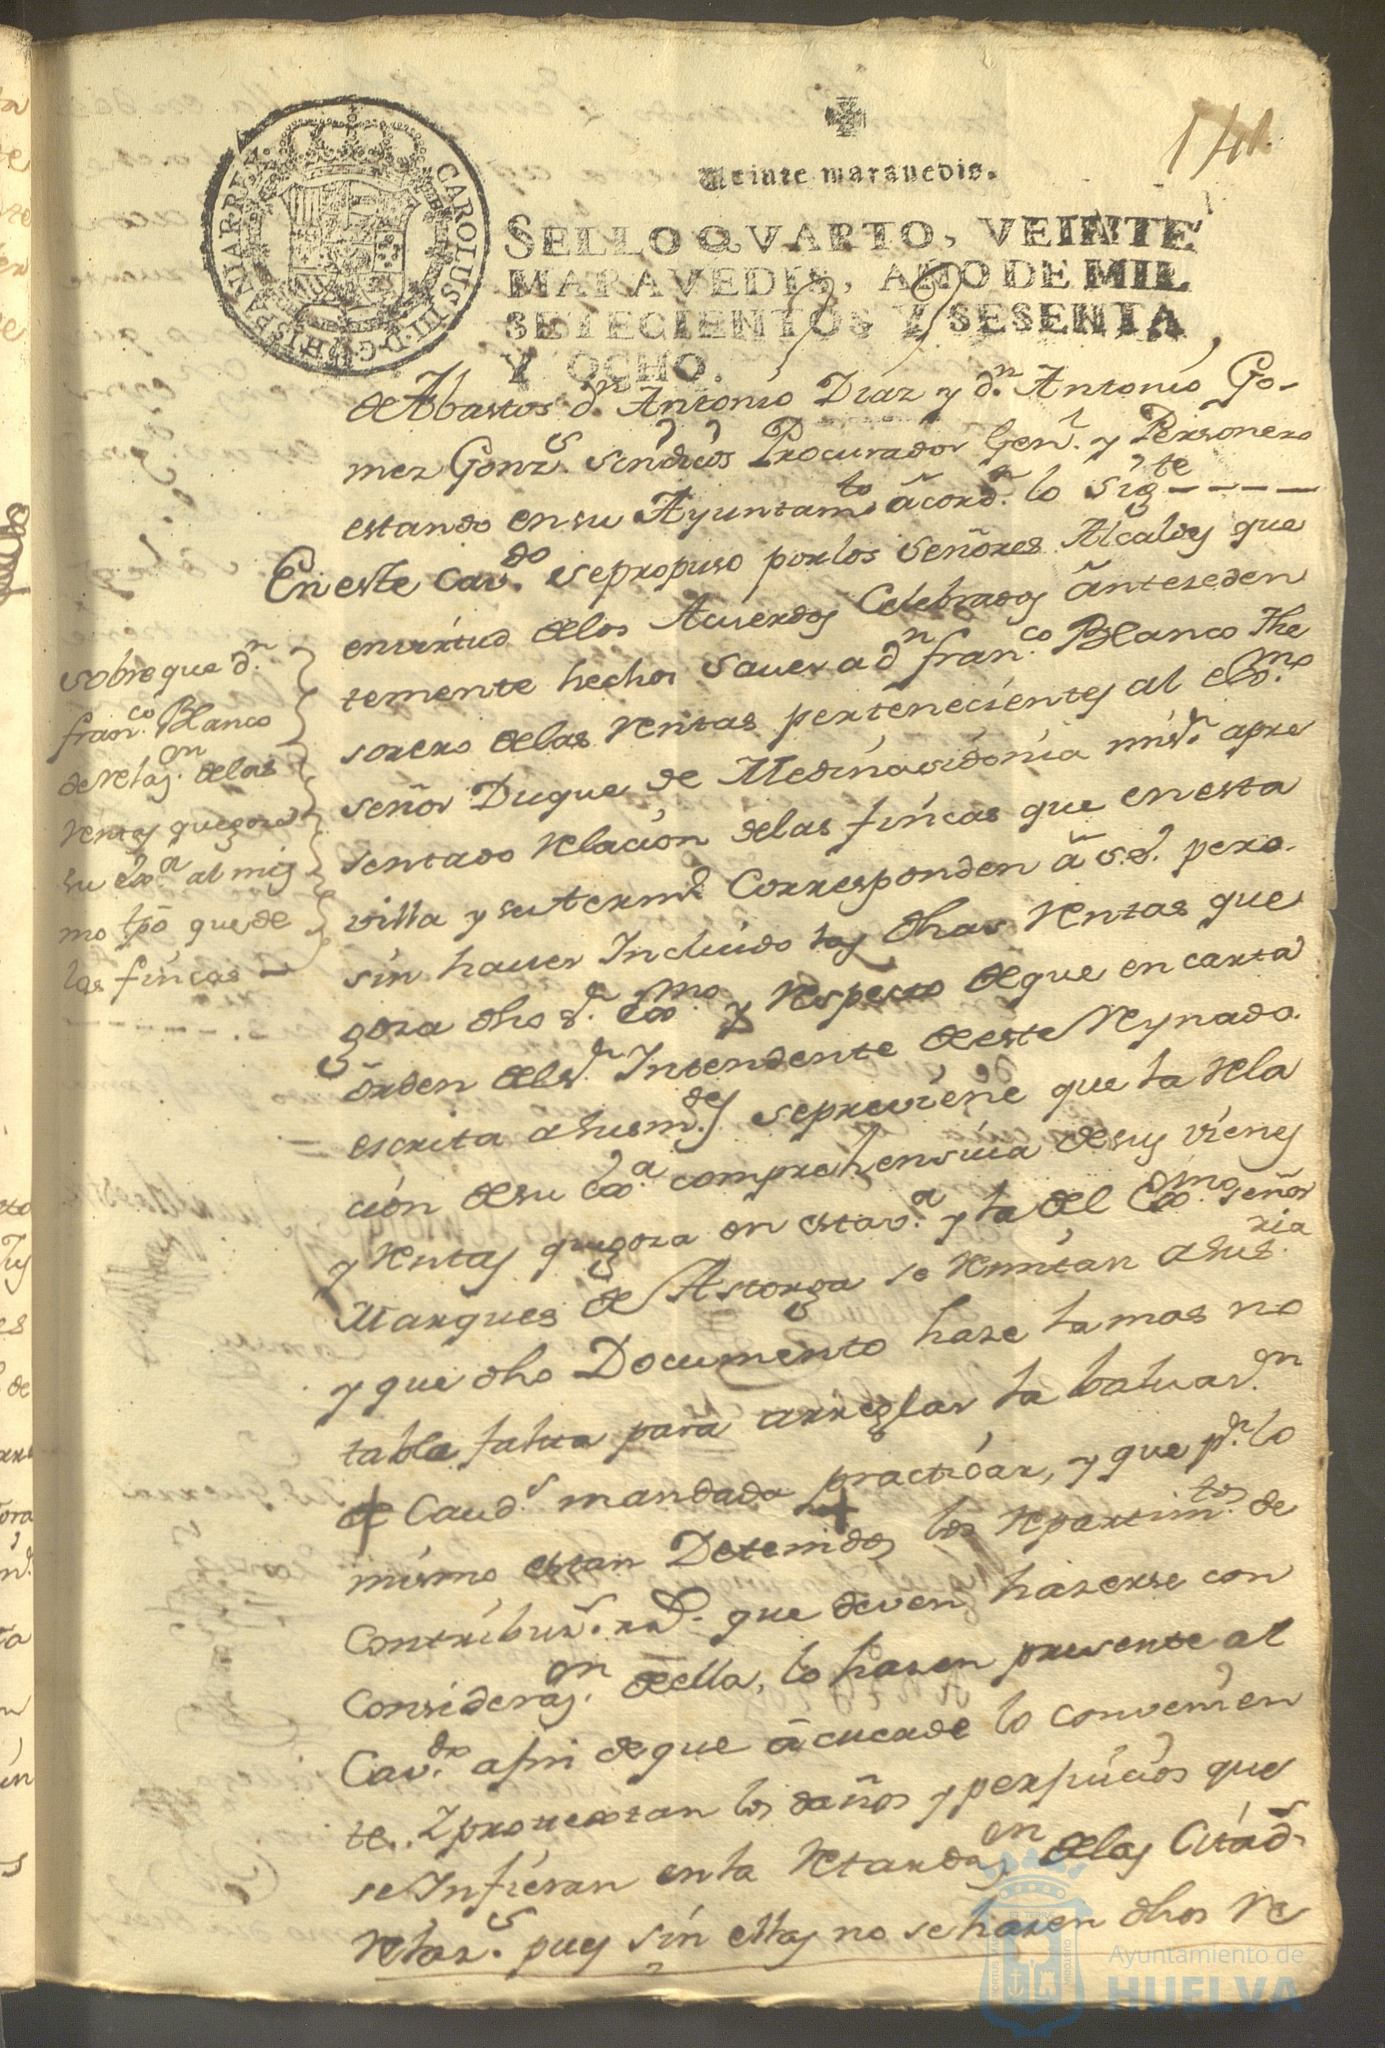 141
Veinte maravedis.
CAROLUS III D.G. HISPANIAR. REX.
SELLO QVARTO, VEINTE
MARAVEDIS, AÑO DE MIL
SETECIENTOS Y SESENTA
Y OCHO.
de Abastos dn. Antonio Diaz y dn. Antonio Go-
mez Gonzs. sindicos Procurador Genl. y Personero
estando en su Ayuntamto. acordn. lo sigte - - - -
En este Cavdo. se propuso por los señores Alcaldes que
en virtud de los Acuerdos Celebrados antezeden
temente hechos saver a dn. franco. Blanco The
sorero de las Rentas pertenecientes al Exmo.
señor Duque de Medinasidonia mi sr. apre
sentado Relacion de las fincas que en esta
villa y su termno. Corresponden a S.E. pero
sin haver Incluido las dhas Rentas que
goza dho sr. Exmo. y Respecto de que en carta
orden del sr. Intendente de este Reynado
escrita a sus mdes. se previene que la Rela
cion de su Exa. comprehensiva de sus vienes
y Rentas que goza en esta va. y la del Exmo. señor
Marques de Astorga se Remitan a su sria.
y que dho Documento haze la mas no
table falta para arreglar la Baluasn.
de Cauds. mandada practicar, y que pr. lo
mismo estan Detenidos los Repartimtos. de
Contribuzs. rs. que deven hazerse con
Considerazn. de ella, lo hazen presente al
Cavdo. a fin de que acuerde lo convenien
te. Y protextan los daños y perjuicios que
se Infieran en la Retardazn. de las Citads.
Relazs. pues sin ellas no se hazen dhos Re
sobre que dn.
franco. Blanco
de Relazn. de las
Rentas que goza
su Exa. al mis
mo tpo que de
las fincas -
Ayuntamiento de
HUELVA